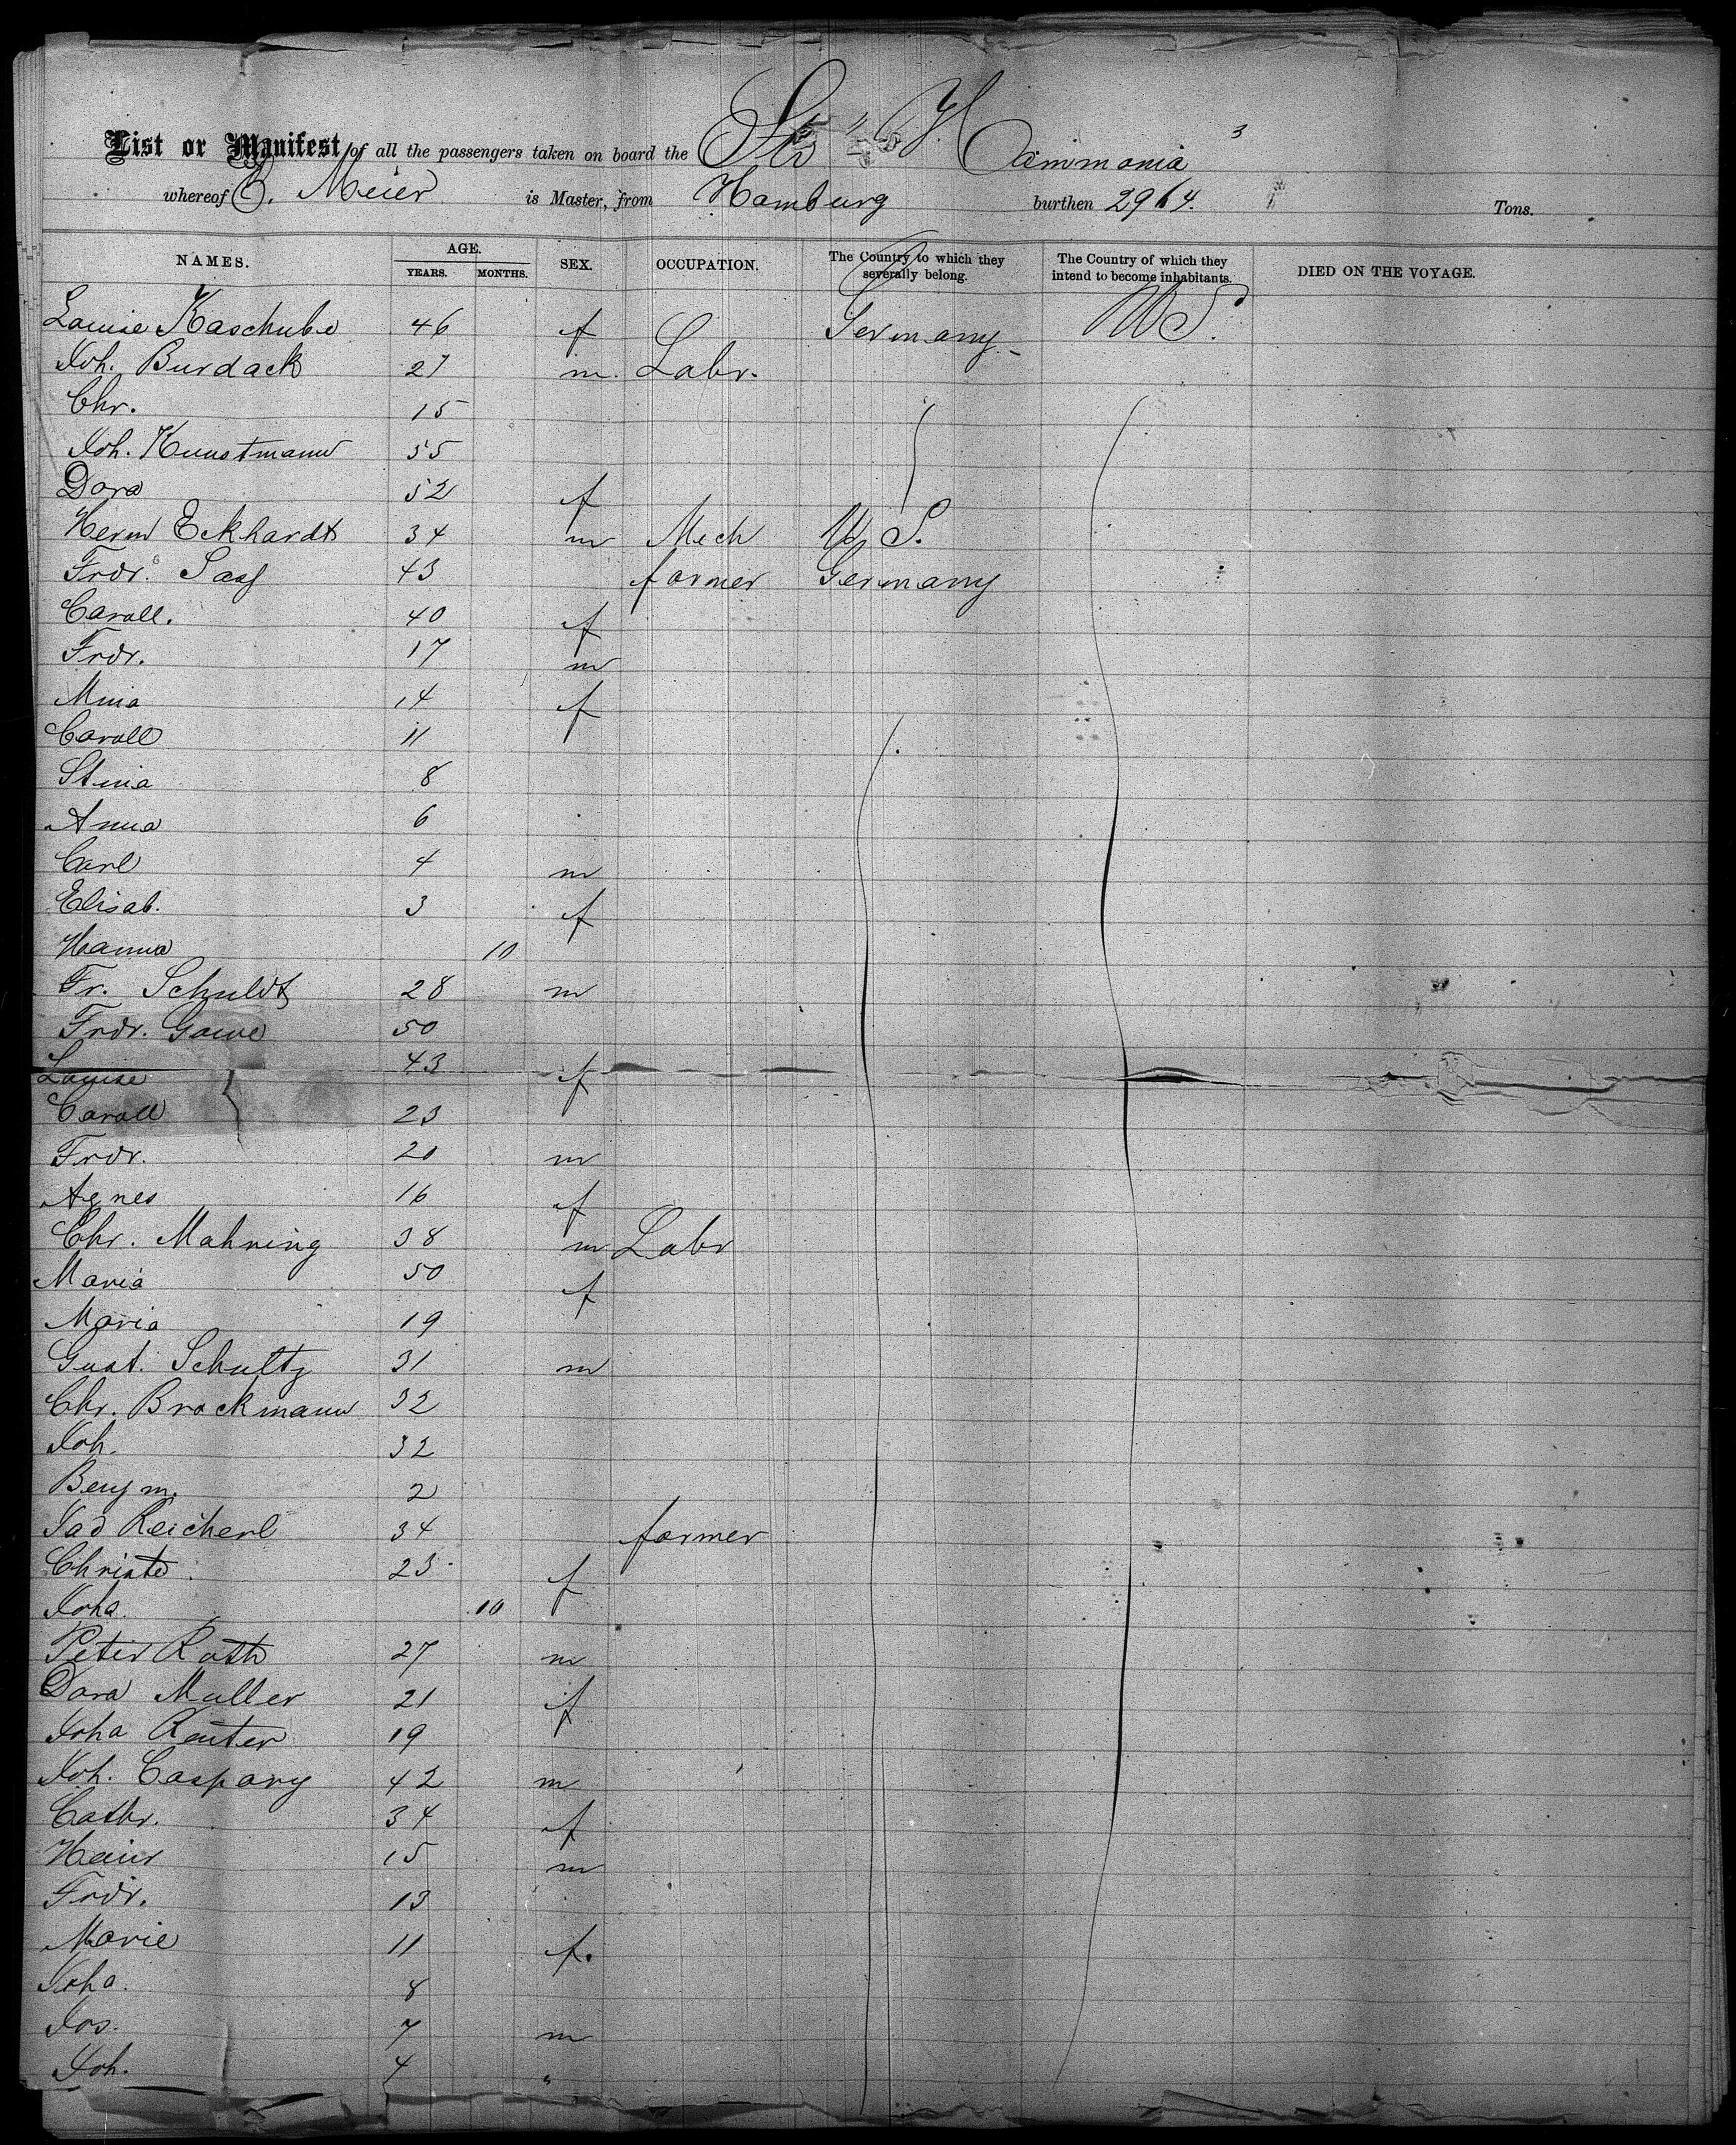 3
List or Manifest of all the passengers taken on board the Str "Hammonia
whereof C. Meier is Master, from Hamburg burthen 2964. Tons.
NAMES. AGE. YEARS. MONTHS. SEX. OCCUPATION. The Country to which they severally belong. The Country of which they intend to become inhabitants. DIED ON THE VOYAGE.
Louise Kaschube 46 f Germany US.
Joh. Burdack 27 m. Labr.
Chr. 15
Joh. Kunstmann 55
Dora 52 f
Herm Eckhardt 34 m Mech U S.
Frdr. Sass 43 farmer Germany
Caroll. 40 f
Frdr. 17 m
Mina 14 f
Caroll 11
Stina 8
Anna 6
Carl 4 m
Elisab. 3 f
Hanna 10
Fr. Schuldt 28 m
Frdr. Gawe 50
Louise 43 f
Caroll 23
Frdr. 20 m
Agnes 16 f
Chr. Mahning 38 m Labr
Maria 50 f
Maria 19
Gust. Schultz 31 m
Chr. Brockmann 32
Joh. 32
Benj m. 2
Reicherl 34 farmer
Christe. 23 f
Joha. 10
Peter Rath 27 m
Dora Muller 21 f
Joha Reuter 19
Joh. Caspary 42 m
Cathr. 34 f
Heinr 15 m
Frdr. 13
Marie 11 f.
Joha. 8
Jos. 7 m
Joh. 4 "